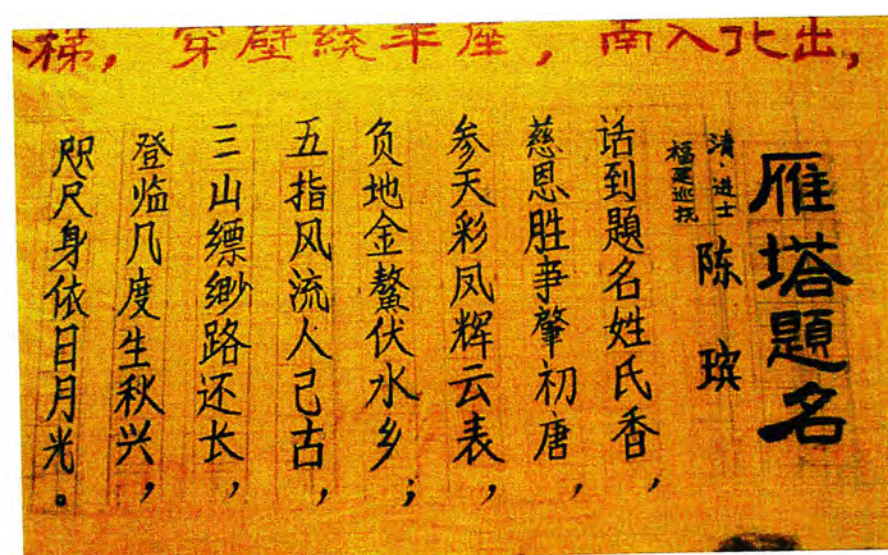 梯，穿壁绕平座，南入北出，
雁塔題名
清·进士
福建巡抚
陈 璸
话到題名姓氏香，
慈恩胜事肇初唐，
参天彩凤辉云表，
负地金鳌伏水乡；
五指风流人已古，
三山缥缈路还长，
登临几度生秋兴，
咫尺身依日月光。